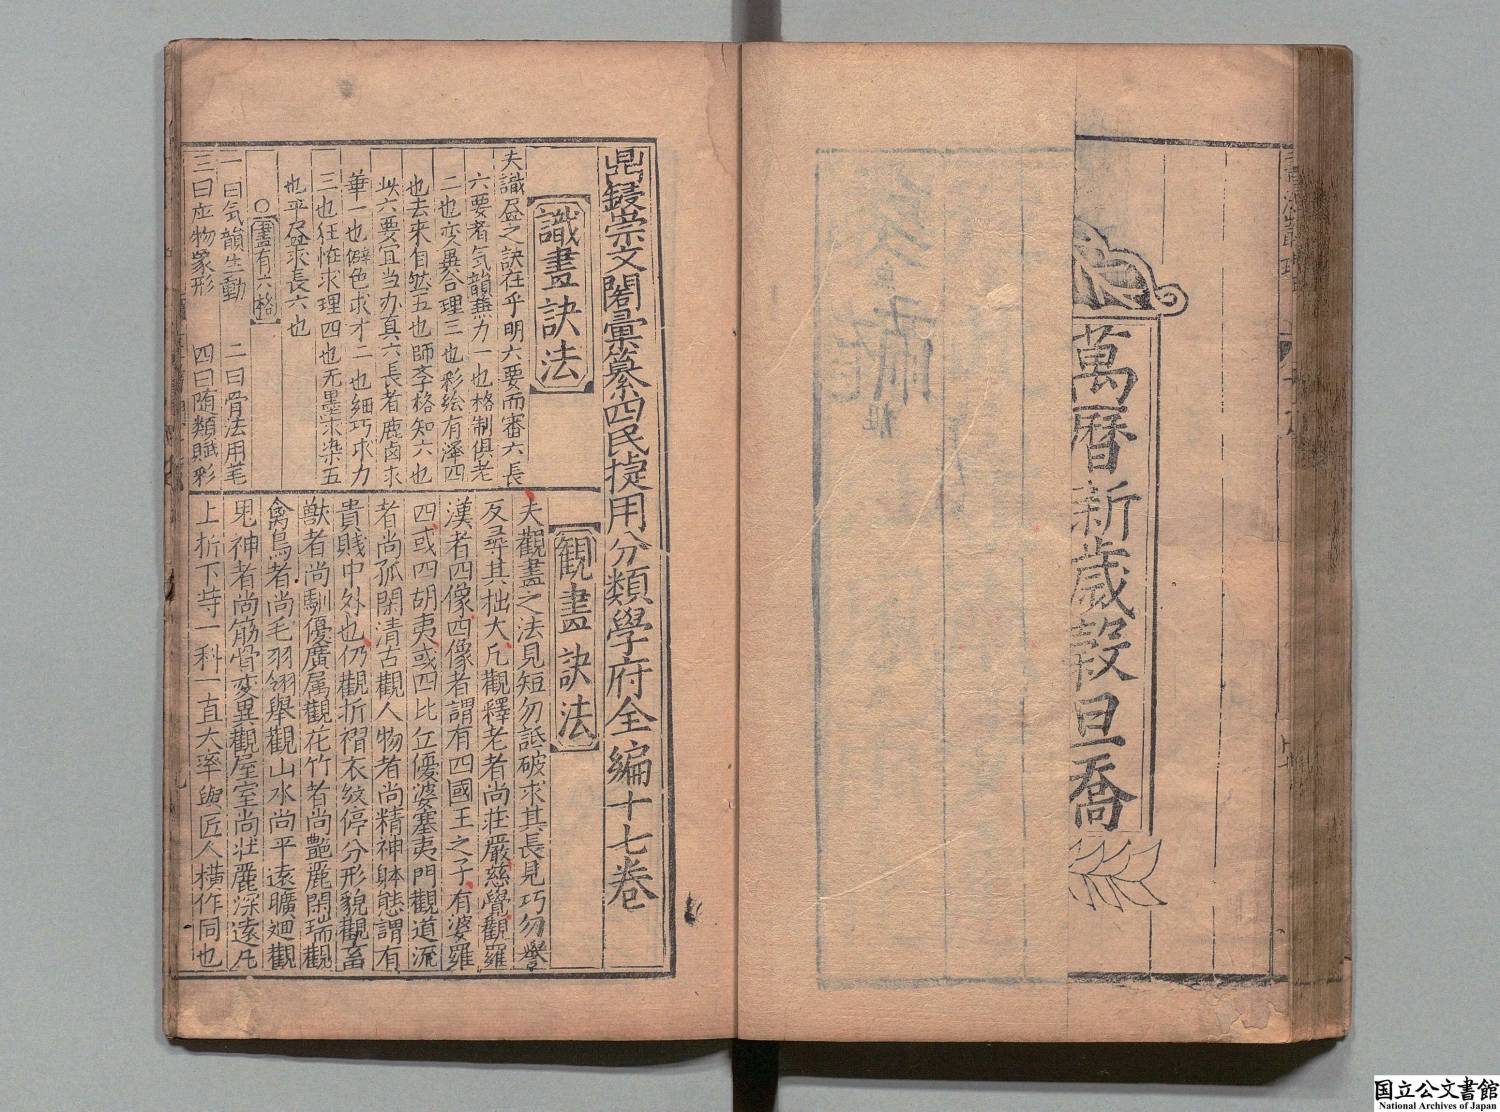 萬暦新歲穀旦喬
鼎鋟崇文閣彙纂四民捷用分類學府全編十七卷
識畫訣法
夫識畫之訣在乎明六要而審六長
六要者気韻兼力一也格制俱老
二也变異合理三也彩絵有澤四
也去來自然五也師孝格知六也
此六要宜当力真六長者麁鹵求
華一也僻色求才二也細巧求力
三也狂恠求理四也无墨求染五
也平畫求長六也
○畫有六格
一曰気韻生動　二曰骨法用毛
三曰应物象形　四曰随類賦彩
觀畫訣法
夫觀畫之法見短勿詆破求其長見巧勿譽
反尋其拙大凡觀釋老者尚莊嚴慈覺觀羅
漢者四像四像者謂有四國王之子有婆羅
四或四胡夷或四比丘優婆塞夷門觀道流
者尚孤閑清古觀人物者尚精神躰態謂有
貴賎中外也仍觀折褶衣紋停分形貌觀畜
獣者尚馴優廣属觀花竹者尚艶麗閑瑞觀
禽鳥者尚毛羽翎舉觀山水尚平遠曠廻觀
鬼神者尚筋骨変異觀屋室尚壮麗深遠凡
上折下等一科一直大率與匠人橫作同也
国立公文書館
National Archives of Japan